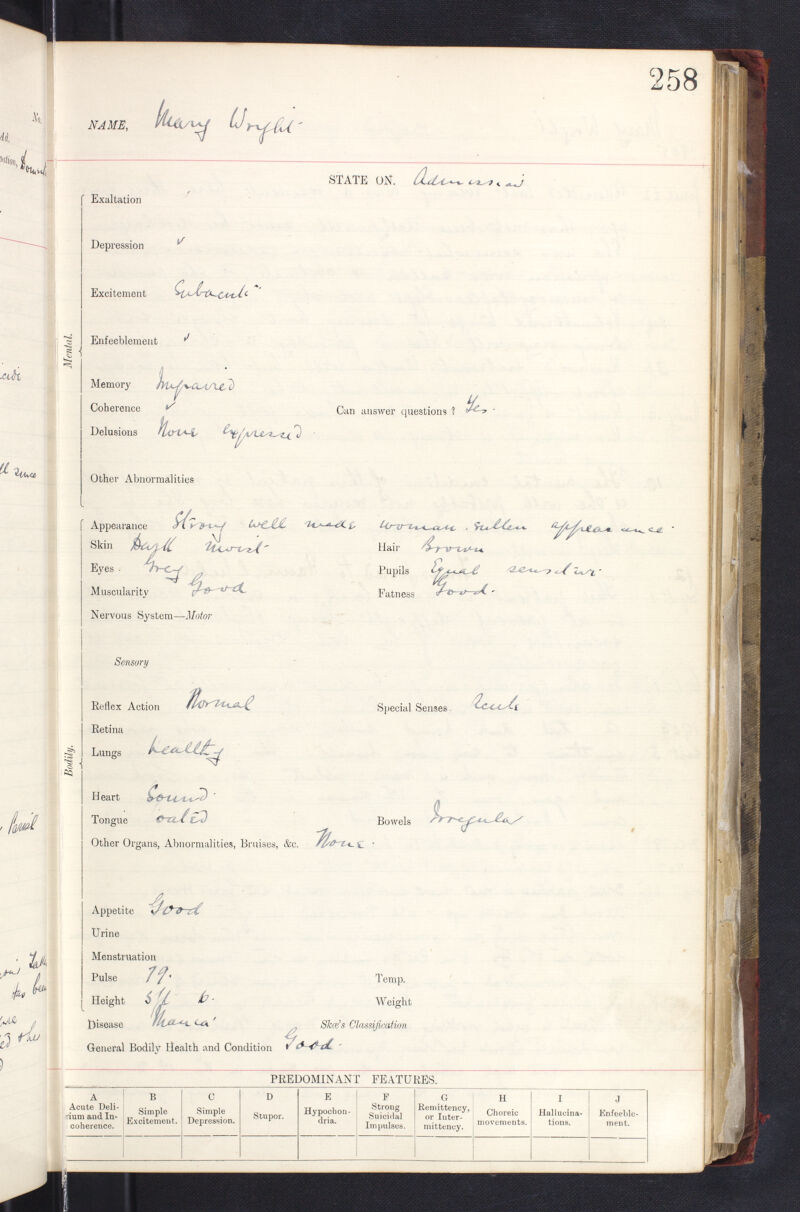 258
NAME, Mary Wright
STATE ON. Admission
Mental.
Exaltation
Depression ✓
Excitement Subacute
Enfeeblement ✓
Memory Impaired
Coherence ✓ Can answer questions? Yes.
Delusions None expressed.
Other Abnormalities
Bodily.
Appearance Strong well made woman. Sullen appearance.
Skin Dark moist Hair Brown
Eyes. Grey Pupils Equal sensitive.
Muscularity Good Fatness Good.
Nervous System—Motor
Sensory
Reflex Action Normal Special Senses. Acute
Retina
Lungs healthy
Heart Sound.
Tongue Bowels Irregular
Other Organs, Abnormalities, Bruises, &c. None.
Appetite Good
Urine
Menstruation
Pulse 79. Temp.
Height 5ft 6. Weight
Disease Mania Skæ's Classification
General Bodily Health and Condition Good.
PREDOMINANT FEATURES.
A B C D E F G H I J
Acute Delirium and Incoherence. Simple Excitement. Simple Depression. Stupor. Hypochondria. Strong Suicidal Impulses. Remittency, or Intermittency. Choreic movements. Hallucinations. Enfeeblement.